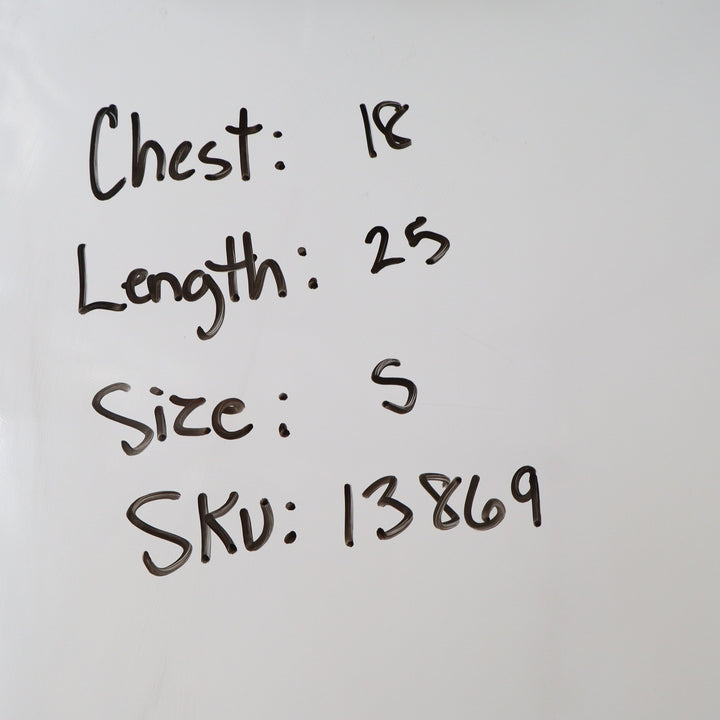 Chest: 18
Length: 25
Size: S
SKU: 13869